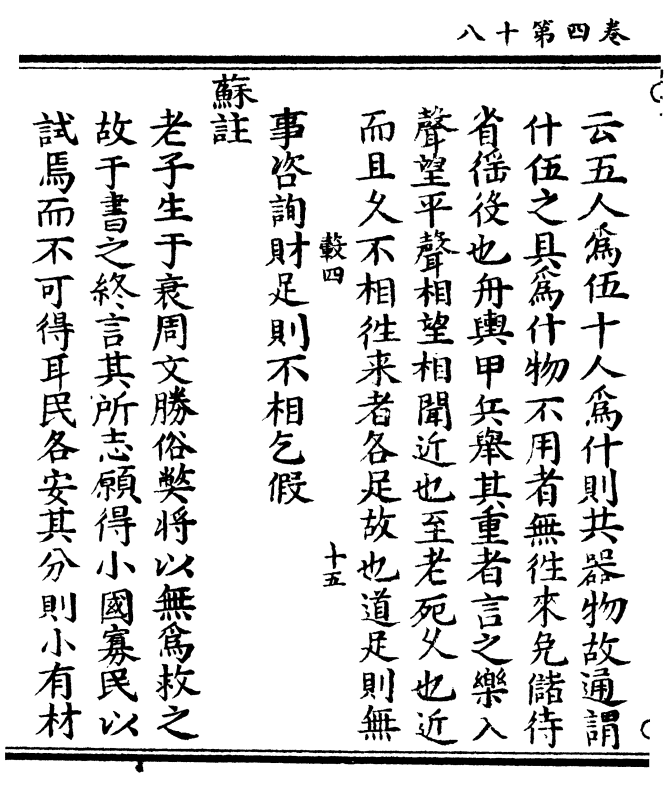 卷四第十八
云五人爲伍十人爲什則共器物故通謂
什伍之具爲什物不用者無徃來免儲待
省徭役也舟輿甲兵舉其重者言之樂入
聲望平聲相望相聞近也至老死乆也近
而且乆不相徃来者各足故也道足則無
䜴四
十五
事咨詢財足則不相乞假
蘇註
老子生于衰周文勝俗獘將以無爲救之
故于書之終言其所志願得小國寡民以
試焉而不可得耳民各安其分則小有材